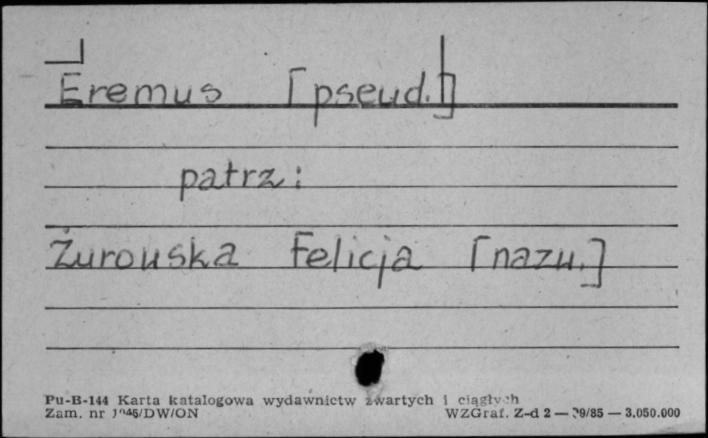 Eremus [pseud.]
patrz:
Żurowska Felicja [nazw.]
Pu-B-144 Karta katalogowa wydawnictw zwartych i ciągłych
Zam. nr /DW/ON WZGraf. Z-d 2 — 29/85 — 3.050.000